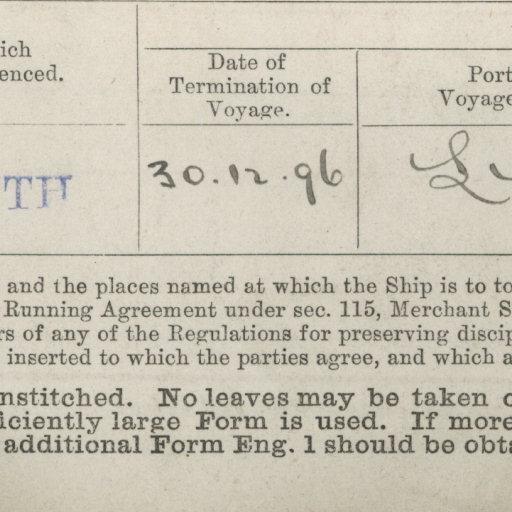 ich
enced.
Date of
Termination of
Voyage.
Port
Voyage
TH
30.12.96
and the places named at which the Ship is to to
Running Agreement under sec. 115, Merchant S
rs of any of the Regulations for preserving discip
inserted to which the parties agree, and which a
nstitched. No leaves may be taken o
iciently large Form is used. If more
additional Form Eng. 1 should be obta